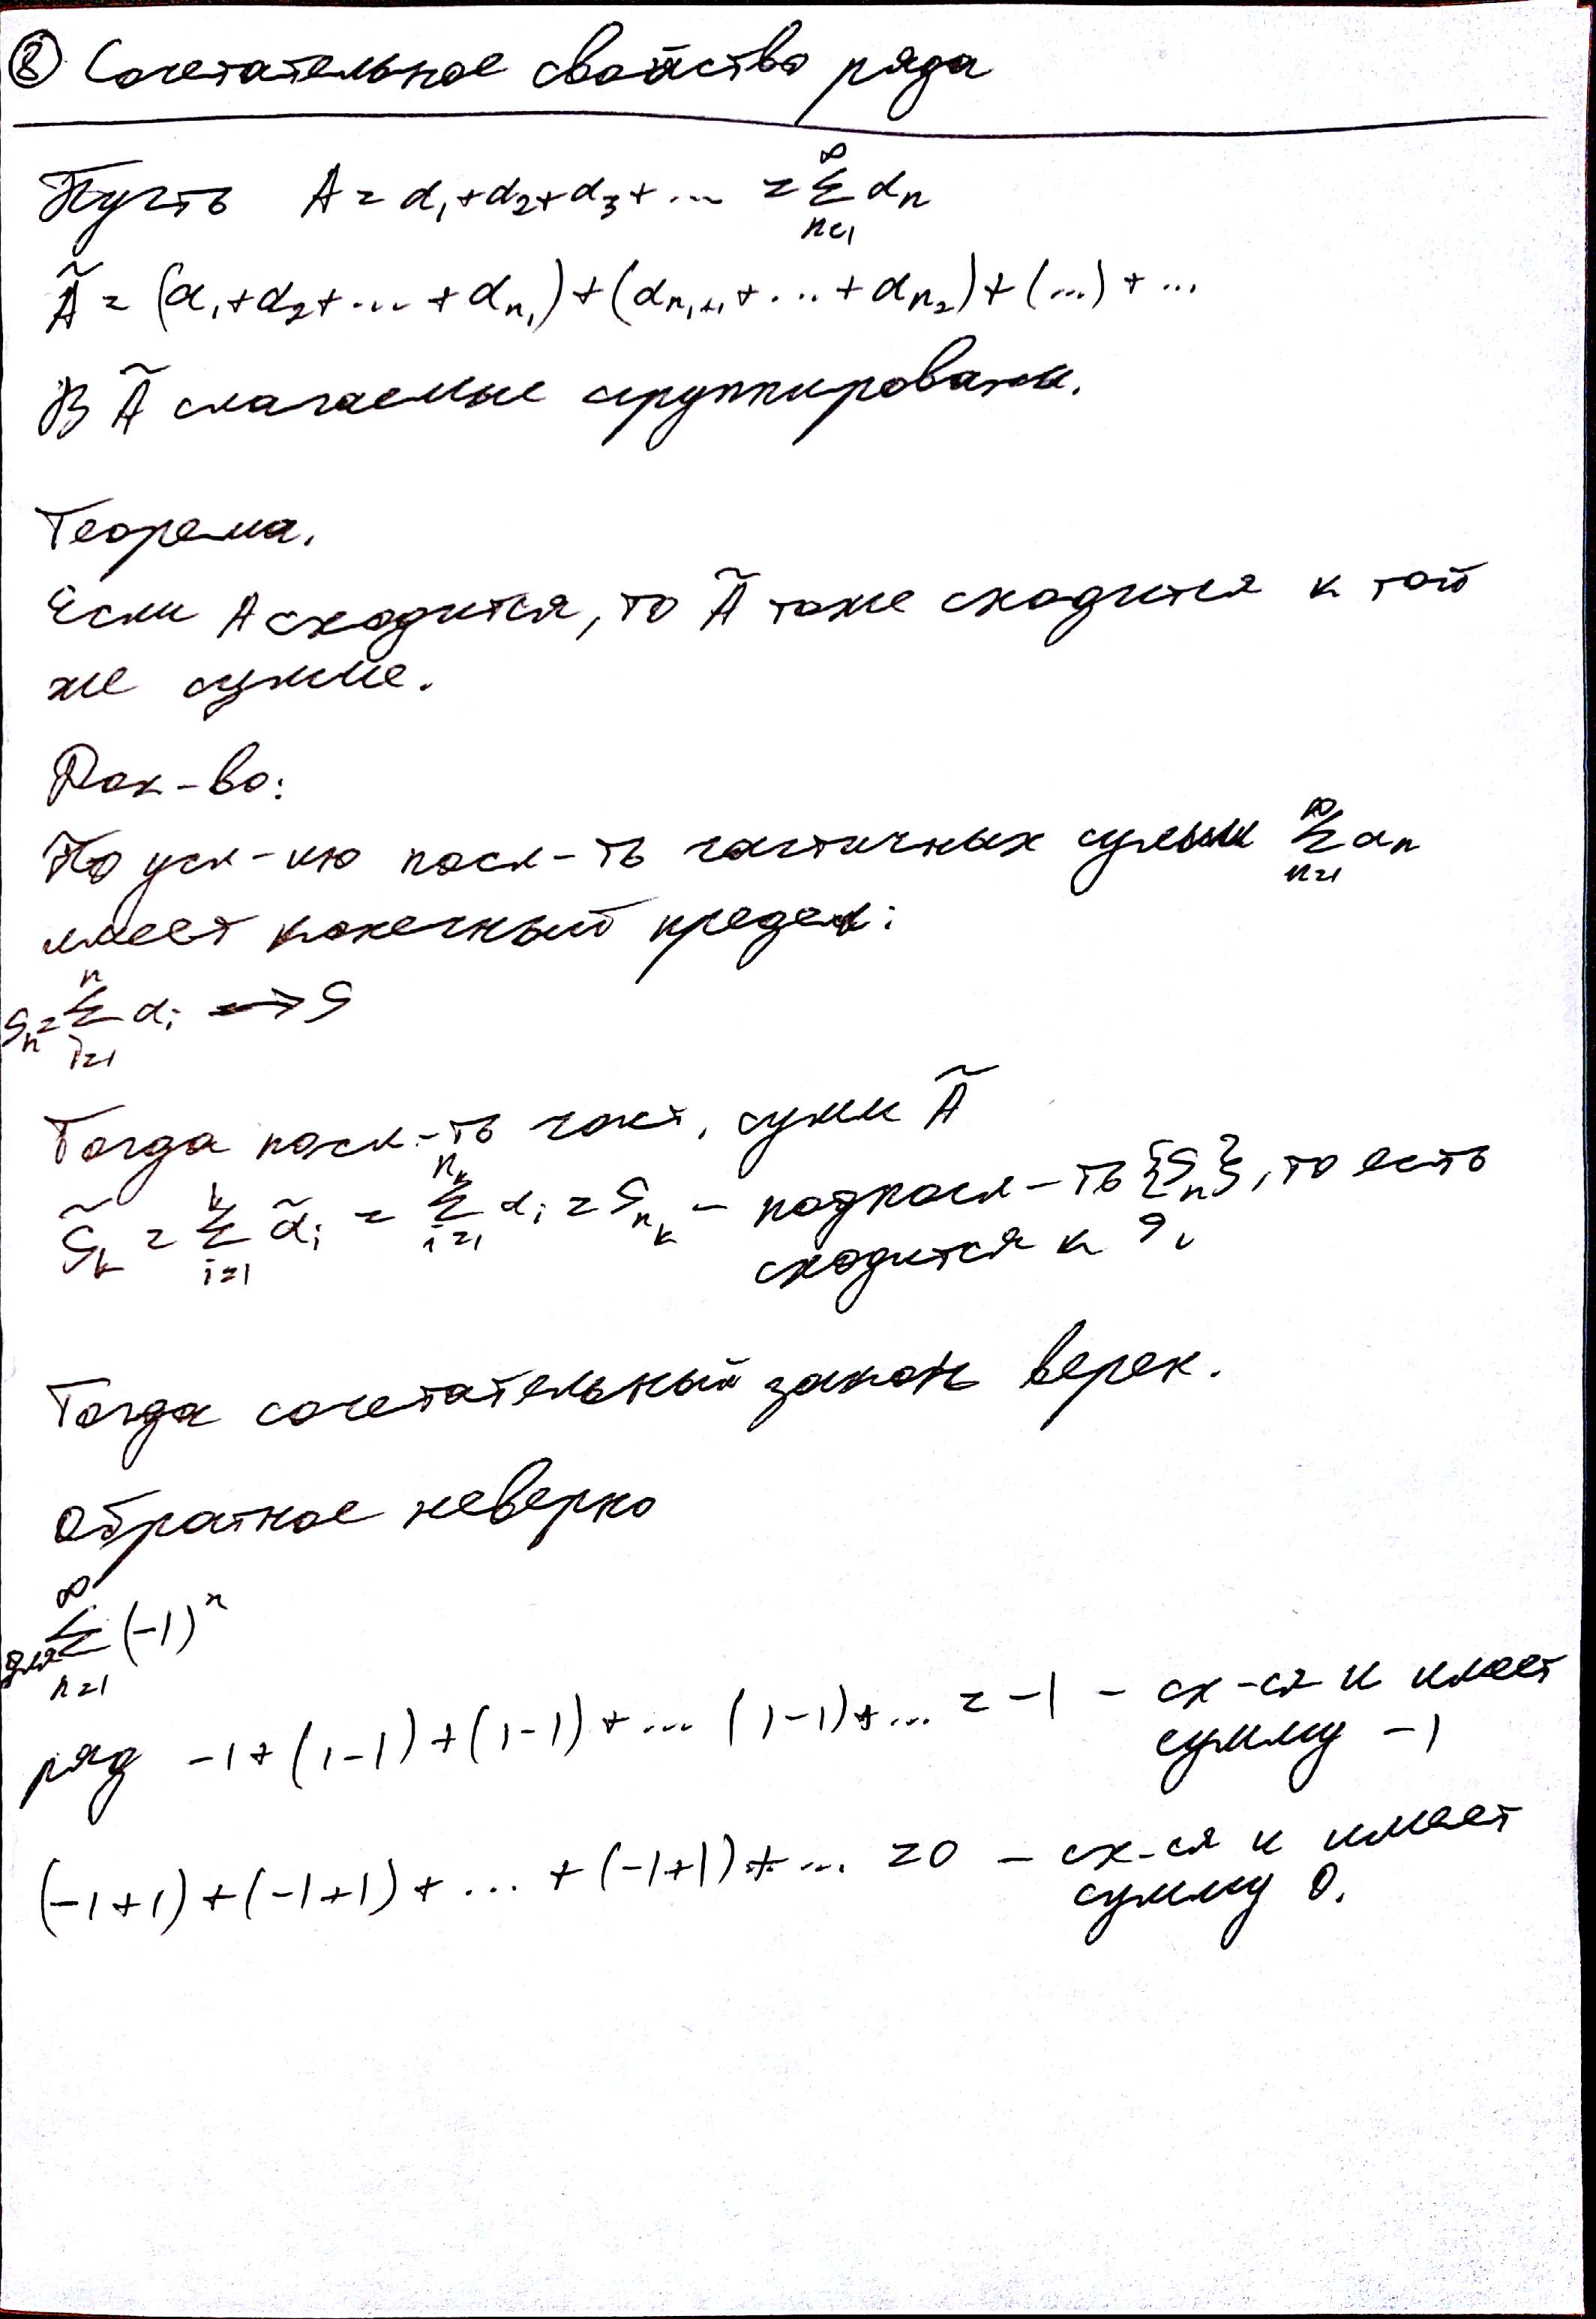 ⑧ Сочетательное свойство ряда
Пусть A = α₁+α₂+α₃+... = ∑_{n=1}^{∞} αₙ
Ã = (α₁+α₂+...+α_{n₁})+(α_{n₁+1}+...+α_{n₂})+(...)+...
В Ã слагаемые сгруппированы.
Теорема.
Если A сходится, то Ã тоже сходится к той
же сумме.
Док-во:
По усл-ию посл-ть частичных сумм ∑_{n=1}^{∞} αₙ
имеет конечный предел:
Sₙ = ∑_{i=1}^{n} αᵢ → S
Тогда посл-ть част. сумм Ã
S̃ₖ = ∑_{i=1}^{k} α̃ᵢ = ∑_{i=1}^{nₖ} αᵢ = S_{nₖ} – подпосл-ть {Sₙ}, то есть
сходится к S.
Тогда сочетательный закон верен.
Обратное неверно
для ∑_{n=1}^{∞} (-1)ⁿ
ряд -1+(1-1)+(1-1)+...(1-1)+... = -1 – сх-ся и имеет
сумму -1
(-1+1)+(-1+1)+...+(-1+1)+... = 0 – сх-ся и имеет
сумму 0.